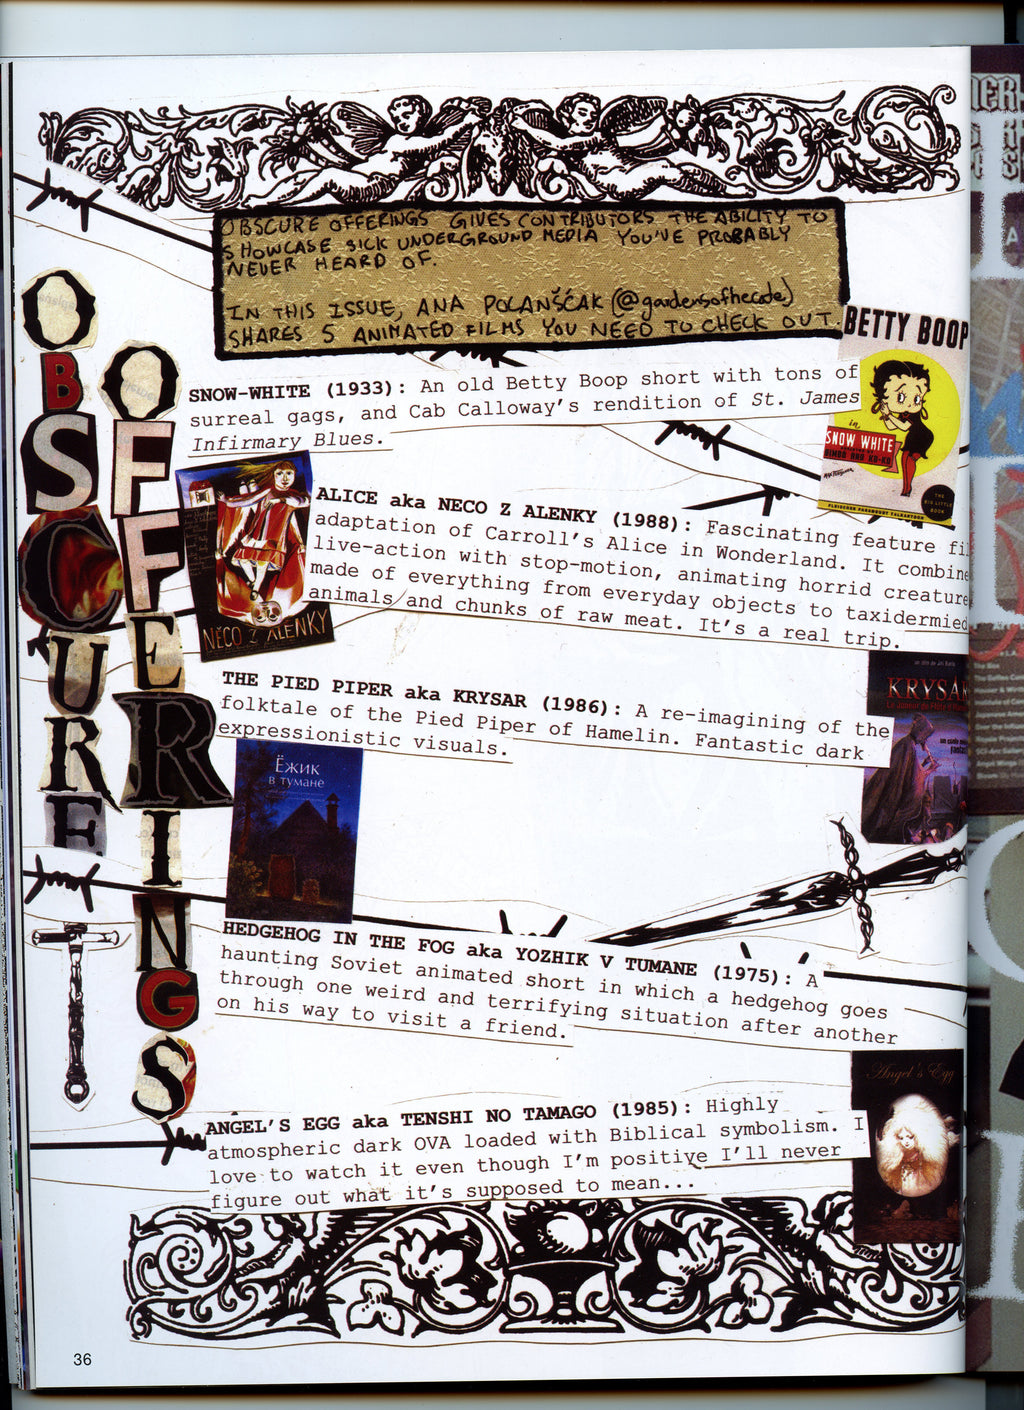 OBSCURE OFFERINGS GIVES CONTRIBUTORS THE ABILITY TO
SHOWCASE SICK UNDERGROUND MEDIA YOU'VE PROBABLY
NEVER HEARD OF.
IN THIS ISSUE, ANA POLANŠĆAK (@gardensofhecate)
SHARES 5 ANIMATED FILMS YOU NEED TO CHECK OUT.
OBSCURE
OFFERINGS
BETTY BOOP
in
SNOW WHITE
BIMBO AND KO-KO
THE
BIG LITTLE
BOOK
FLEISCHER PARAMOUNT TALKARTOON
SNOW-WHITE (1933): An old Betty Boop short with tons of
surreal gags, and Cab Calloway's rendition of St. James
Infirmary Blues.
NĚCO Z ALENKY
ALICE aka NECO Z ALENKY (1988): Fascinating feature fi
adaptation of Carroll's Alice in Wonderland. It combine
live-action with stop-motion, animating horrid creature
made of everything from everyday objects to taxidermied
animals and chunks of raw meat. It's a real trip.
un film de Jiri Barta
KRYSA
THE PIED PIPER aka KRYSAR (1986): A re-imagining of the
folktale of the Pied Piper of Hamelin. Fantastic dark
expressionistic visuals.
Ёжик
в тумане
HEDGEHOG IN THE FOG aka YOZHIK V TUMANE (1975): A
haunting Soviet animated short in which a hedgehog goes
through one weird and terrifying situation after another
on his way to visit a friend.
Angel's Egg
ANGEL'S EGG aka TENSHI NO TAMAGO (1985): Highly
atmospheric dark OVA loaded with Biblical symbolism. I
love to watch it even though I'm positive I'll never
figure out what it's supposed to mean...
36